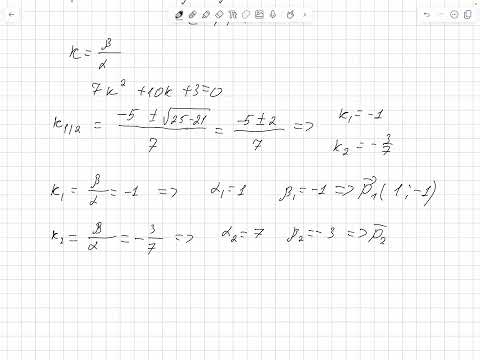 k = β/α
7k² + 10k + 3 = 0
k₁/₂ = (-5 ± √(25-21))/7 = (-5 ± 2)/7 => k₁ = -1
k₂ = -3/7
k₁ = β/α = -1 => α₁ = 1 β₁ = -1 => p⃗₁(1; -1)
k₂ = β/α = -3/7 => α₂ = 7 β₂ = -3 => p⃗₂